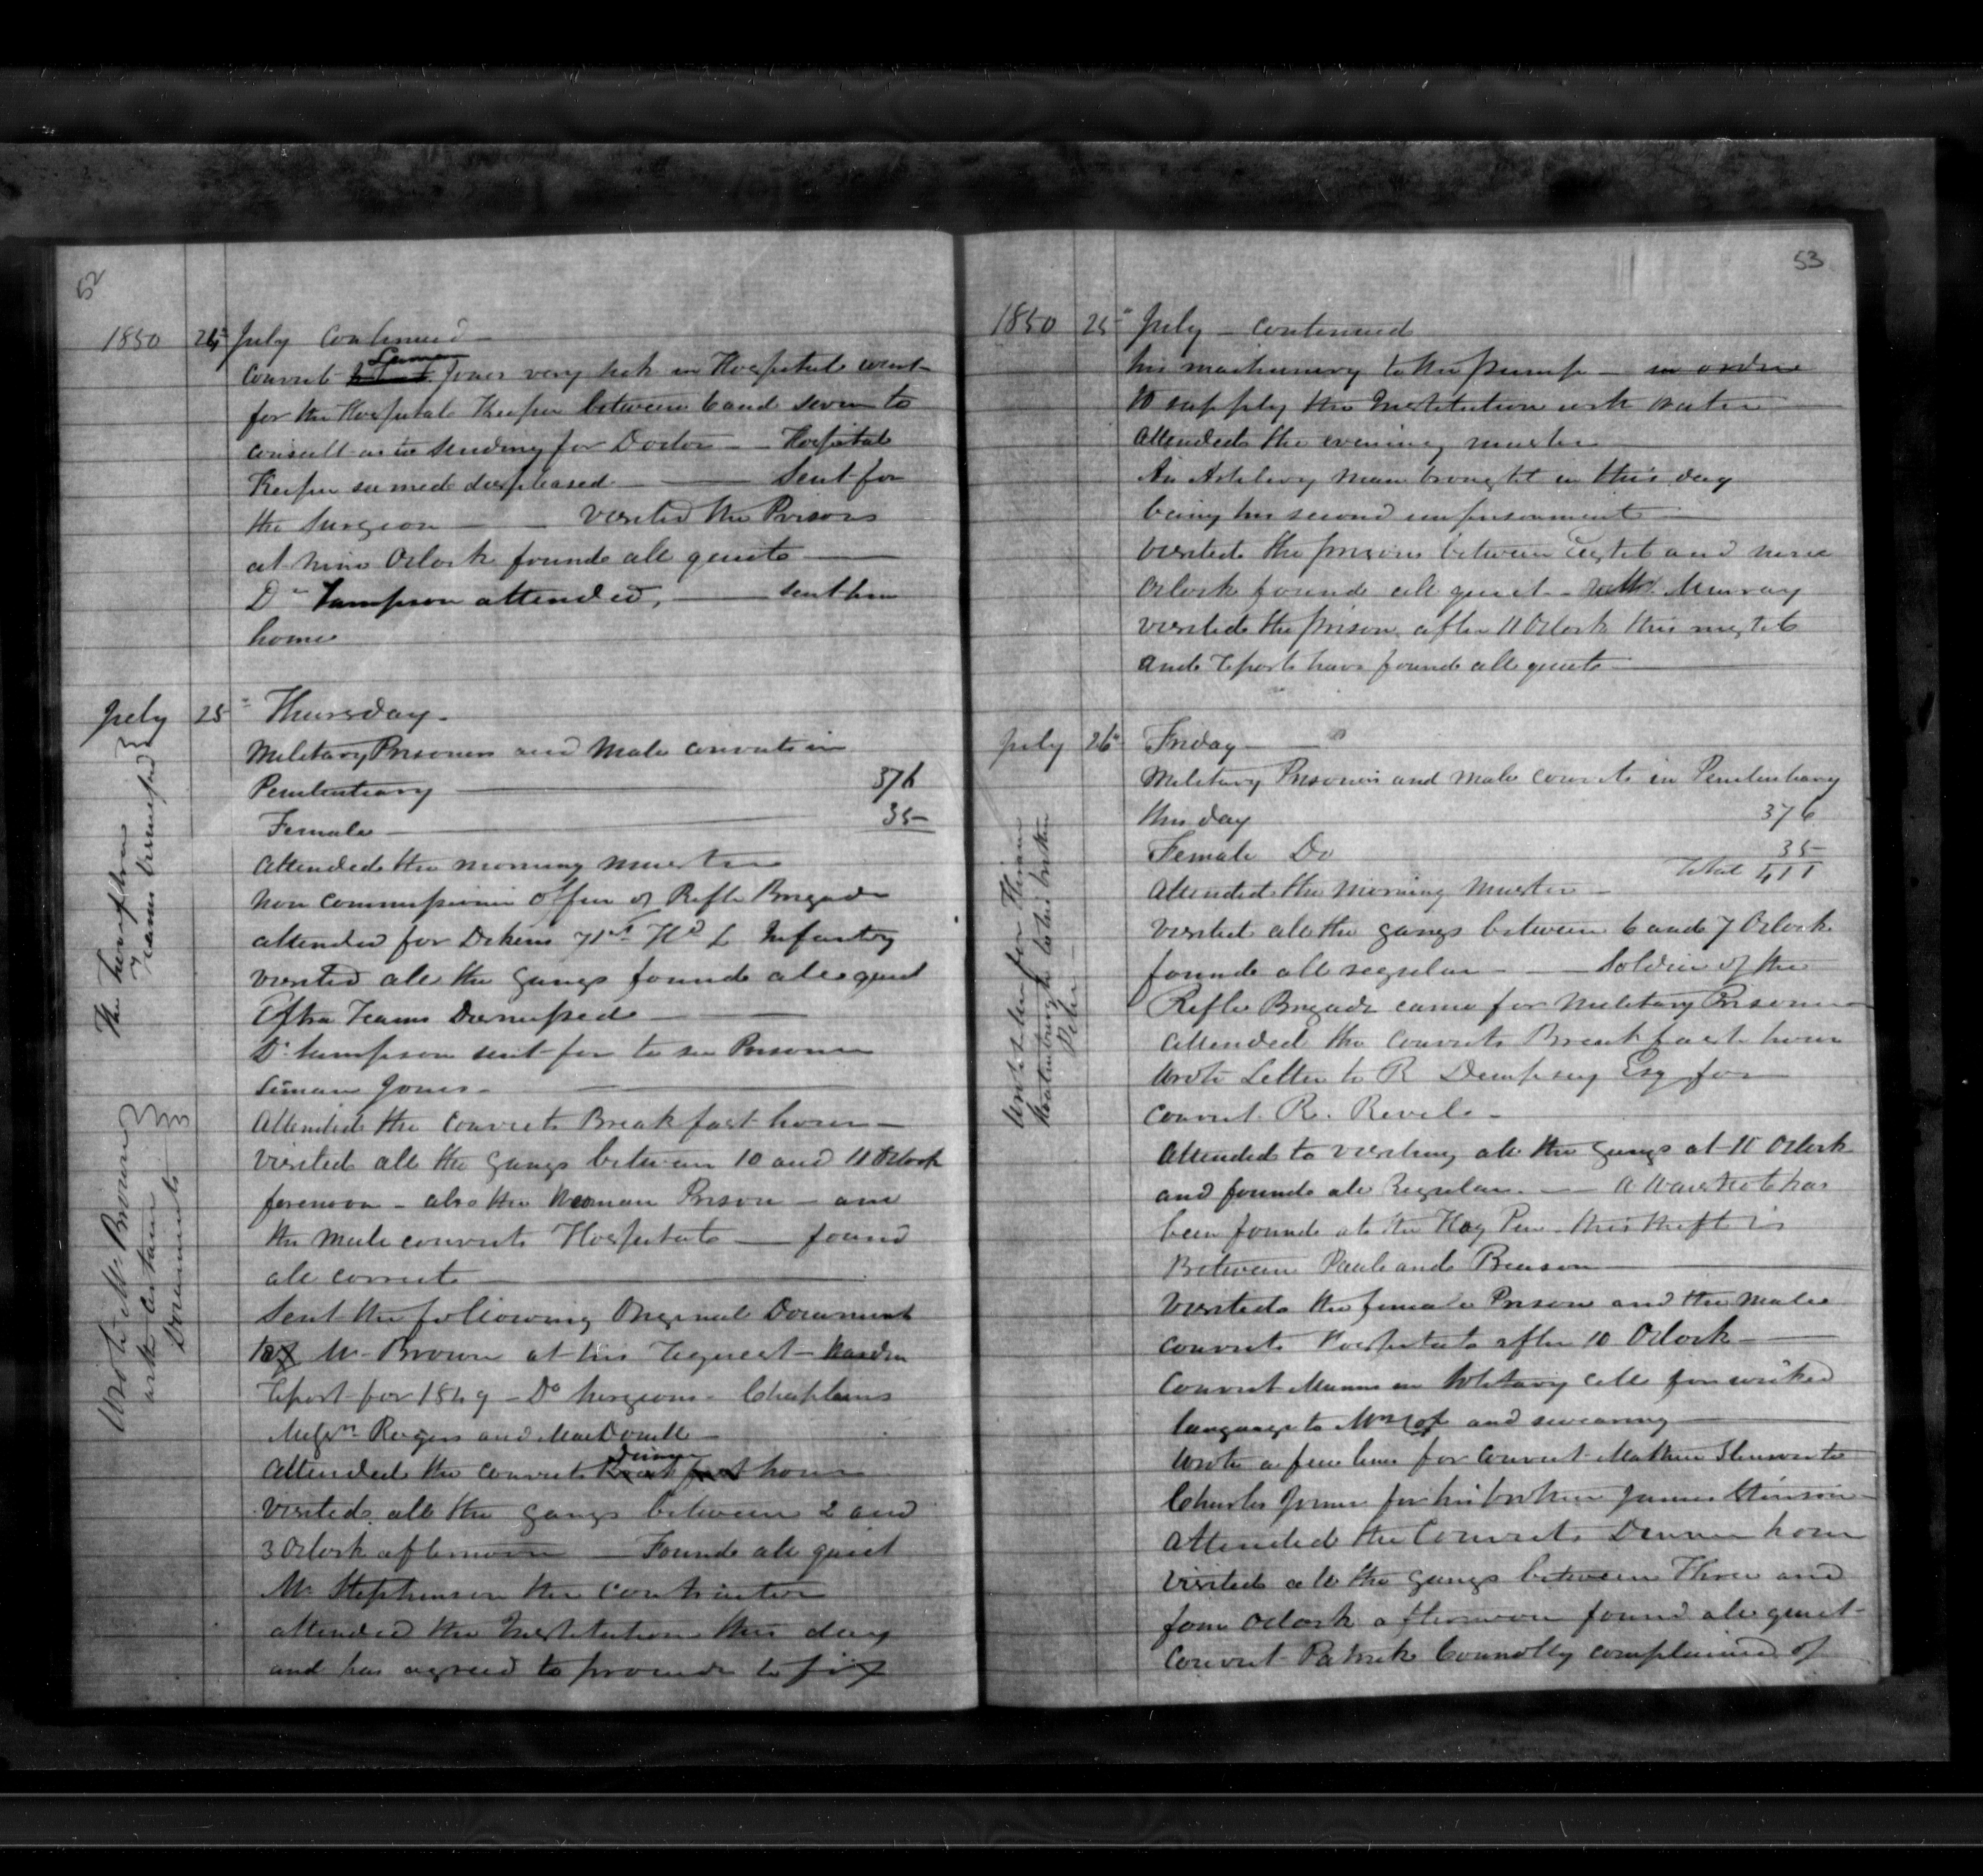 52
1850 24th July Continued
Convict Jones very sick in Hospital went
for the Hospital Keeper between 6 and seven to
consult as to sending for Doctor — Hospital
Keeper seemed displeased — Sent for
the Surgeon — Visited the Prisons
at nine Oclock found all quiet
Dr Sampson attended, — sent him
home
July 25th Thursday
Military Prisoners and Male convicts in
Penitentiary — 376
Female — 35
attended the morning muster
non commissioned officer of Rifle Brigade
attended for Dekens 71st Hd L Infantry
visited all the gangs found all quiet
Extra Teams Dismissed
Dr Sampson sent for to see Prisoner
Jones
Attended the convicts Breakfast hour
Visited all the gangs between 10 and 11 Oclock
forenoon — also the Woman Prison — and
the Male convicts Hospital — found
all correct
Sent the following Original Document
to Mr Brown at his request — Warden
report for 1849 — Do Surgeons — Chaplains
Messrs Rogers and MacDonell
Attended the convicts Dinner hour
Visited all the gangs between 2 and
3 Oclock afternoon — Found all quiet
Mr Stephenson the contractor
attended the Institution this day
and has agreed to provide to fix
Teams dismissed
Wrote Mr Brown
with certain
Documents
53
1850 25th July — continued
his machinery to the pump — in order
to supply the Institution with water
Attended the evening muster
An Artilery man brought in this day
being his second imprisonment
visited the prisons between Eight and nine
Oclock found all quiet — Murray
visited the prison after 11 Oclock this night
and reports have found all quiet
July 26th Friday
Military Prisoners and male convicts in Penitentiary
this day 376
Female Do 35
Total 411
Attended the Morning Muster
Visited all the gangs between 6 and 7 Oclock
found all regular — Soldier of the
Rifle Brigade came for Military Prisoner
Attended the Convicts Breakfast hour
Wrote Letter to R Dempsey Esq for
convict R. Revels
Attended to visiting all the gangs at 11 Oclock
and found all Regular — A Waistcoat has
been found at the Hay Pen this theft is
Between Paul and Benson
Visited the female Prison and the Male
convicts Hospital after 10 Oclock
Convict Mann in Solitary cell for wicked
language to and swearing
Wrote a few lines for convict Mathew Stinson to
Charles Jones for his brother James Stinson
Attended the Convicts Dinner hour
Visited all the gangs between Three and
four Oclock afternoon found all quiet
Convict Patrick Connolly complained of